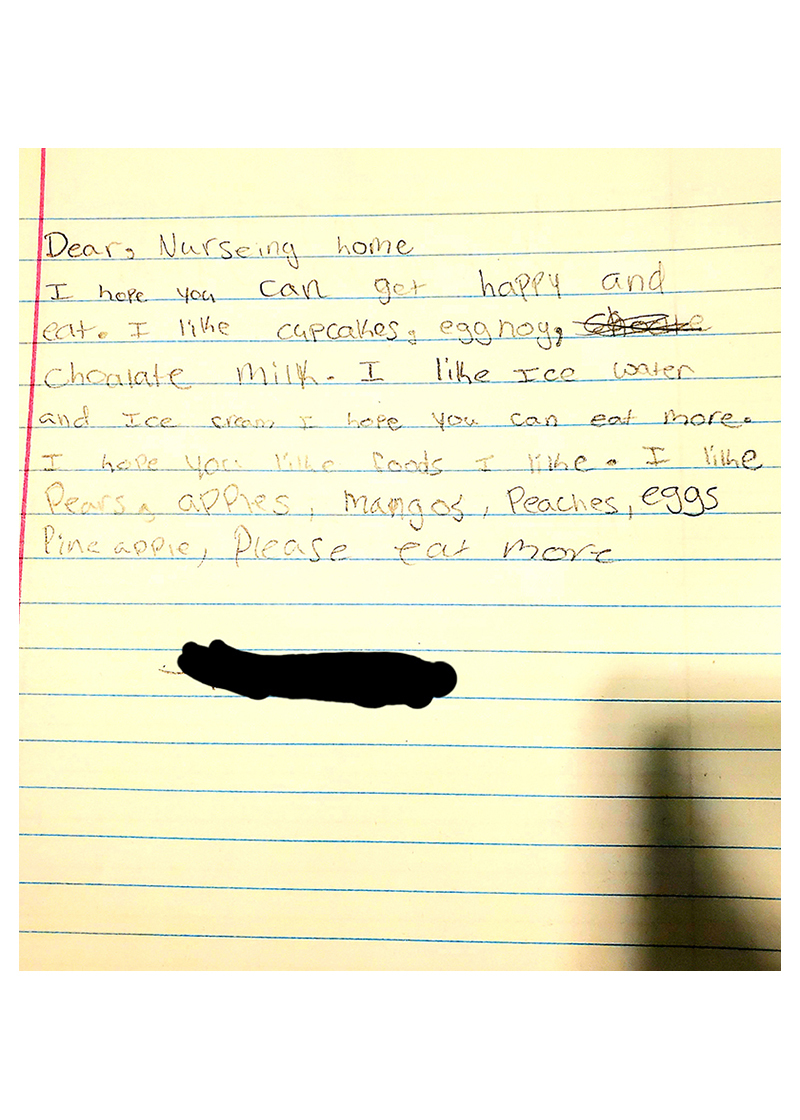 Dear, Nurseing home
I hope you can get happy and
eat. I like cupcakes, eggnog,
choalate milk. I like Ice water
and Ice cream I hope you can eat more.
I hope you like foods I like. I like
Pears, apples, mangos, Peaches, eggs
Pineapple, Please eat more